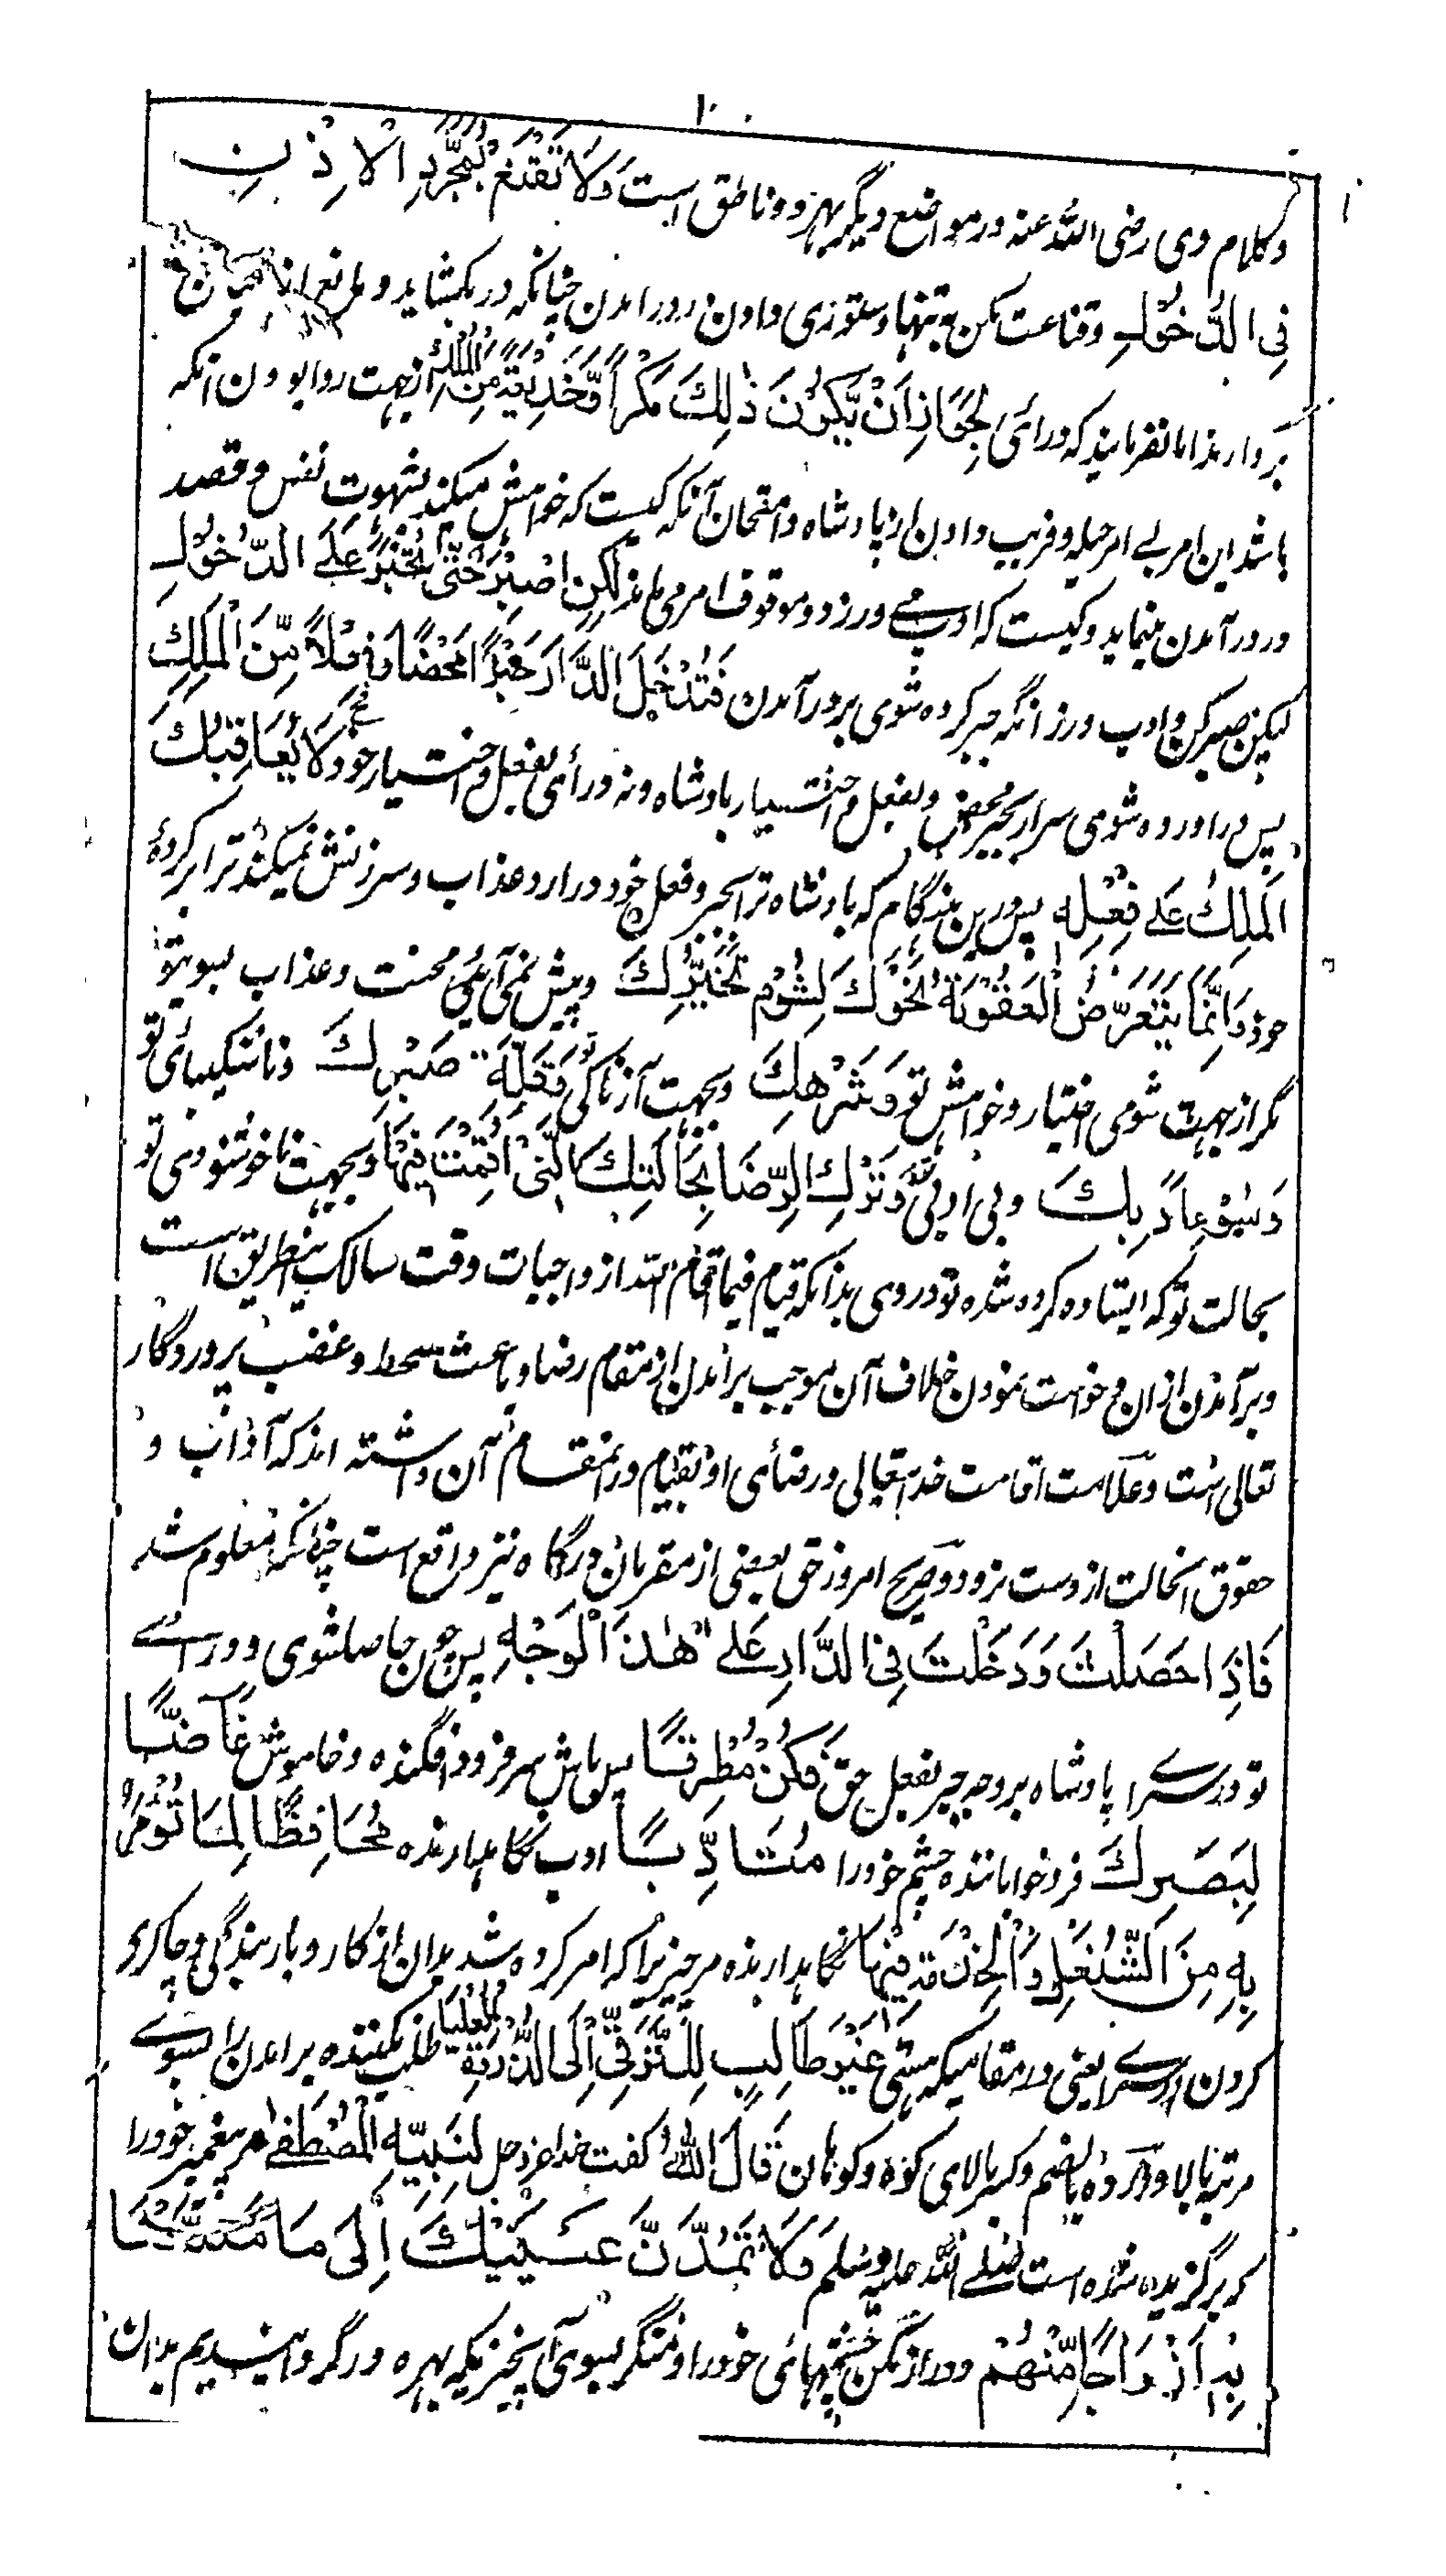 ۱۰
وکلام وی رضی الله عنه در مواضع دیگر بهر دو ناطق است وَلَا تَقْنَعْ بِمُجَرَّدِ الْاِذْنِ
فِی الدُّخُوْلِ وقناعت مکن به تنها دستوری دادن در درامدن چنانکه در بکشاید و مانع
بردارند اما نفرمایند که درائی لِجَوَازِ اَنْ یَّکُوْنَ ذٰلِکَ مَکْرًا وَّخَدِیْعَةً مِنَ الْمَلِکِ از جهت روا بودن انکه
باشد این امر بے امر حیله و فریب دادن از پادشاه و امتحان آنکه کیست که خواهش میکند بشهوت نفس و قصد
در درآمدن مینماید و کیست که ادب می ورزد و موقوف امر می ماند لٰکِنِ اصْبِرْ حَتّٰی تُجْبَرَ عَلَی الدُّخُوْلِ
لیکن صبر کن و ادب ورز انگه جبر کرده شوی بر درآمدن فَتُدْخَلَ الدَّارَ جَبْرًا مَحْضًا وَفِعْلًا مِّنَ الْمَلِکِ
پس دراورده شوی سرا بجبر محض و بفعل و اختیار بادشاه و نه درائی بفعل و اختیار خود فَحِ لَا یُعَاقِبُکَ
الْمَلِکُ عَلٰے فِعْلِهٖ پس درین هنگام که بادشاه ترا بجبر و فعل خود درارد عذاب و سرزنش نمیکند ترا بر کردهٔ
خود وَاِنَّمَا یَتَعَرَّضُ الْعَقُوْبَةُ نَحْوَکَ لِشُوْمِ تَخَیُّرِکَ و پیش نمی آید محنت و عذاب بسوی تو
مگر از جهت شومی اختیار و خواهش تو وَشَرَهِکَ و بجهت آزناکی تو وَقِلَّةِ صَبْرِکَ و ناشکیبائی تو
وَسُوْءِ اَدَبِکَ و بی ادبی تو وَتَرْکِ الرِّضَا بِحَالَتِکَ الَّتِیْ اُقِمْتَ فِیْهَا و بجهت ناخوشنودی تو
بحالت تو که ایستاده کرده شده تو در وی بدانکه قیام فیما اقام الله از واجبات وقت سالک اینطریق است
و برآمدن ازان و خواست نمودن خلاف آن موجب برامدن از مقام رضا و باعث سخط و غضب پروردگار
تعالی است و علامت اقامت خدایتعالی و رضائی او بقیام در انمقام آن داشته اند که آداب و
حقوق انحالت از دست نرود و صریح امر از حق بعضی از مقربان درگاه نیز واقع است چنانکه معلوم شد
فَاِذَا حَصَلْتَ وَدَخَلْتَ فِی الدَّارِ عَلٰے هٰذَا الْوَجْهِ پس چون حاصلشوی و درائے
تو در سرے پادشاه بر وجه جبر بفعل حق فَکُنْ مُطْرِقًا پس باش سر فرود افگنده و خاموش غَآضًّا
لِبَصَرِکَ فرو خواباننده چشم خود را مُتَاَدِّبًا ادب نگاهدارنده مُحَافِظًا لِمَا تُؤْمَرُ
بِهٖ مِنَ الشُّغْلِ وَالْخِدْمَةِ فِیْهَا نگاهدارنده مر چیزیرا که امر کرده شد بدان از کار و بار بندگی و چاکری
کردن در سرے یعنی در مقامیکه هستی غَیْرَ طَالِبٍ لِلتَّرَقِّیْ اِلَی الذُّرْوَةِ الْعُلْیَا طلب نکننده برامدن را بسوے
مرتبه بالا و ذروه بالضم و کسر بالای کوه و کوهان قَالَ اللّٰهُ گفت خدا عز و جل لِنَبِیِّهِ الْمُصْطَفٰے مر پیغمبر خود را
که برگزیده شده است صلے الله علیه وسلم وَلَا تَمُدَّنَّ عَیْنَیْکَ اِلٰی مَا مَتَّعْنَا
بِهٖ اَزْوَاجًا مِّنْهُمْ و دراز مکن چشمهائی خود را و منگر بسوی آنچیزیکه بهره ور گردانیدیم بدان